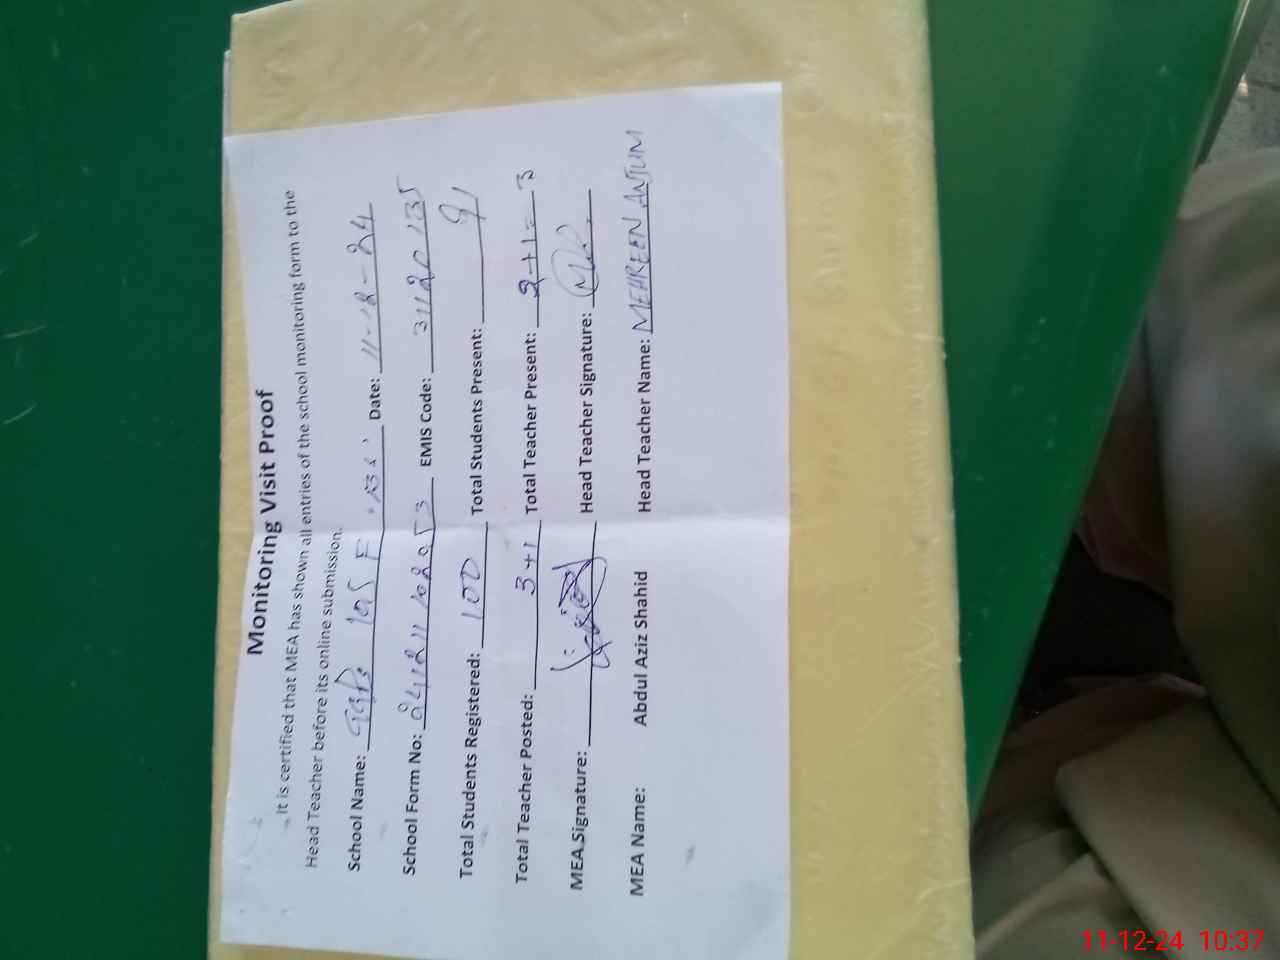 Monitoring Visit Proof
It is certified that MEA has shown all entries of the school monitoring form to the
Head Teacher before its online submission.
School Name: 195 F Date: 11-12-24
School Form No: EMIS Code: 31120135
Total Students Registered: 100 Total Students Present: 91
Total Teacher Posted: 3+1 Total Teacher Present: 2+1=3
MEA Signature: Head Teacher Signature:
MEA Name: Abdul Aziz Shahid Head Teacher Name: MEHREEN ANJUM
11-12-24 10:37